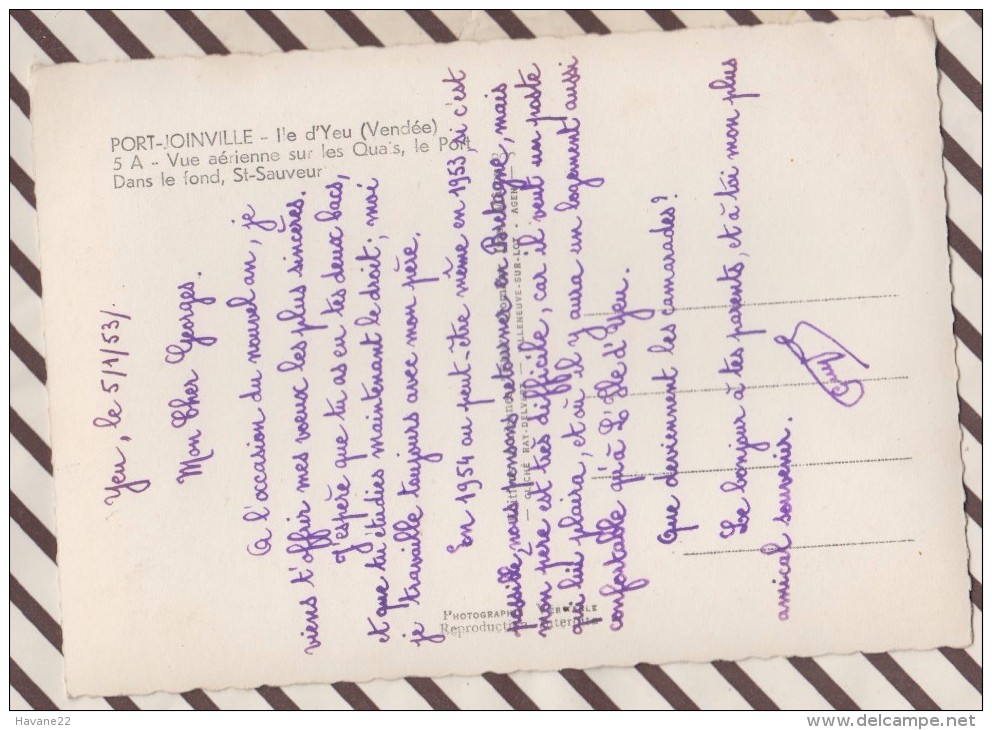 PORT-JOINVILLE - Ile d'Yeu (Vendée)
5 A - Vue aérienne sur les Quais, le Port
Dans le fond, St-Sauveur
Yeu, le 5/1/53/
Mon Cher Georges.
A l'occasion du nouvel an, je
viens t'offrir mes voeux les plus sincères.
J'espère que tu as eu tes deux bacs,
et que tu étudies maintenant le droit; moi
je travaille toujours avec mon père.
En 1954 ou peut-être même en 1953, si c'est
possible nous pensons retourner en Bretagne, mais
mon père est très difficile, car il veut un poste
qui lui plaira, et où il y aura un logement aussi
confortable qu'à L'Ile d'Yeu.
Que deviennent les camarades?
Le bonjour à tes parents, et à toi mon plus
amical souvenir.
Guy
CLICHÉ RAY-DELVERT - VILLENEUVE-SUR-LOT - AGEN
PHOTOGRAPHIE VÉRITABLE
Reproduction interdite
Havane22
www.delcampe.net